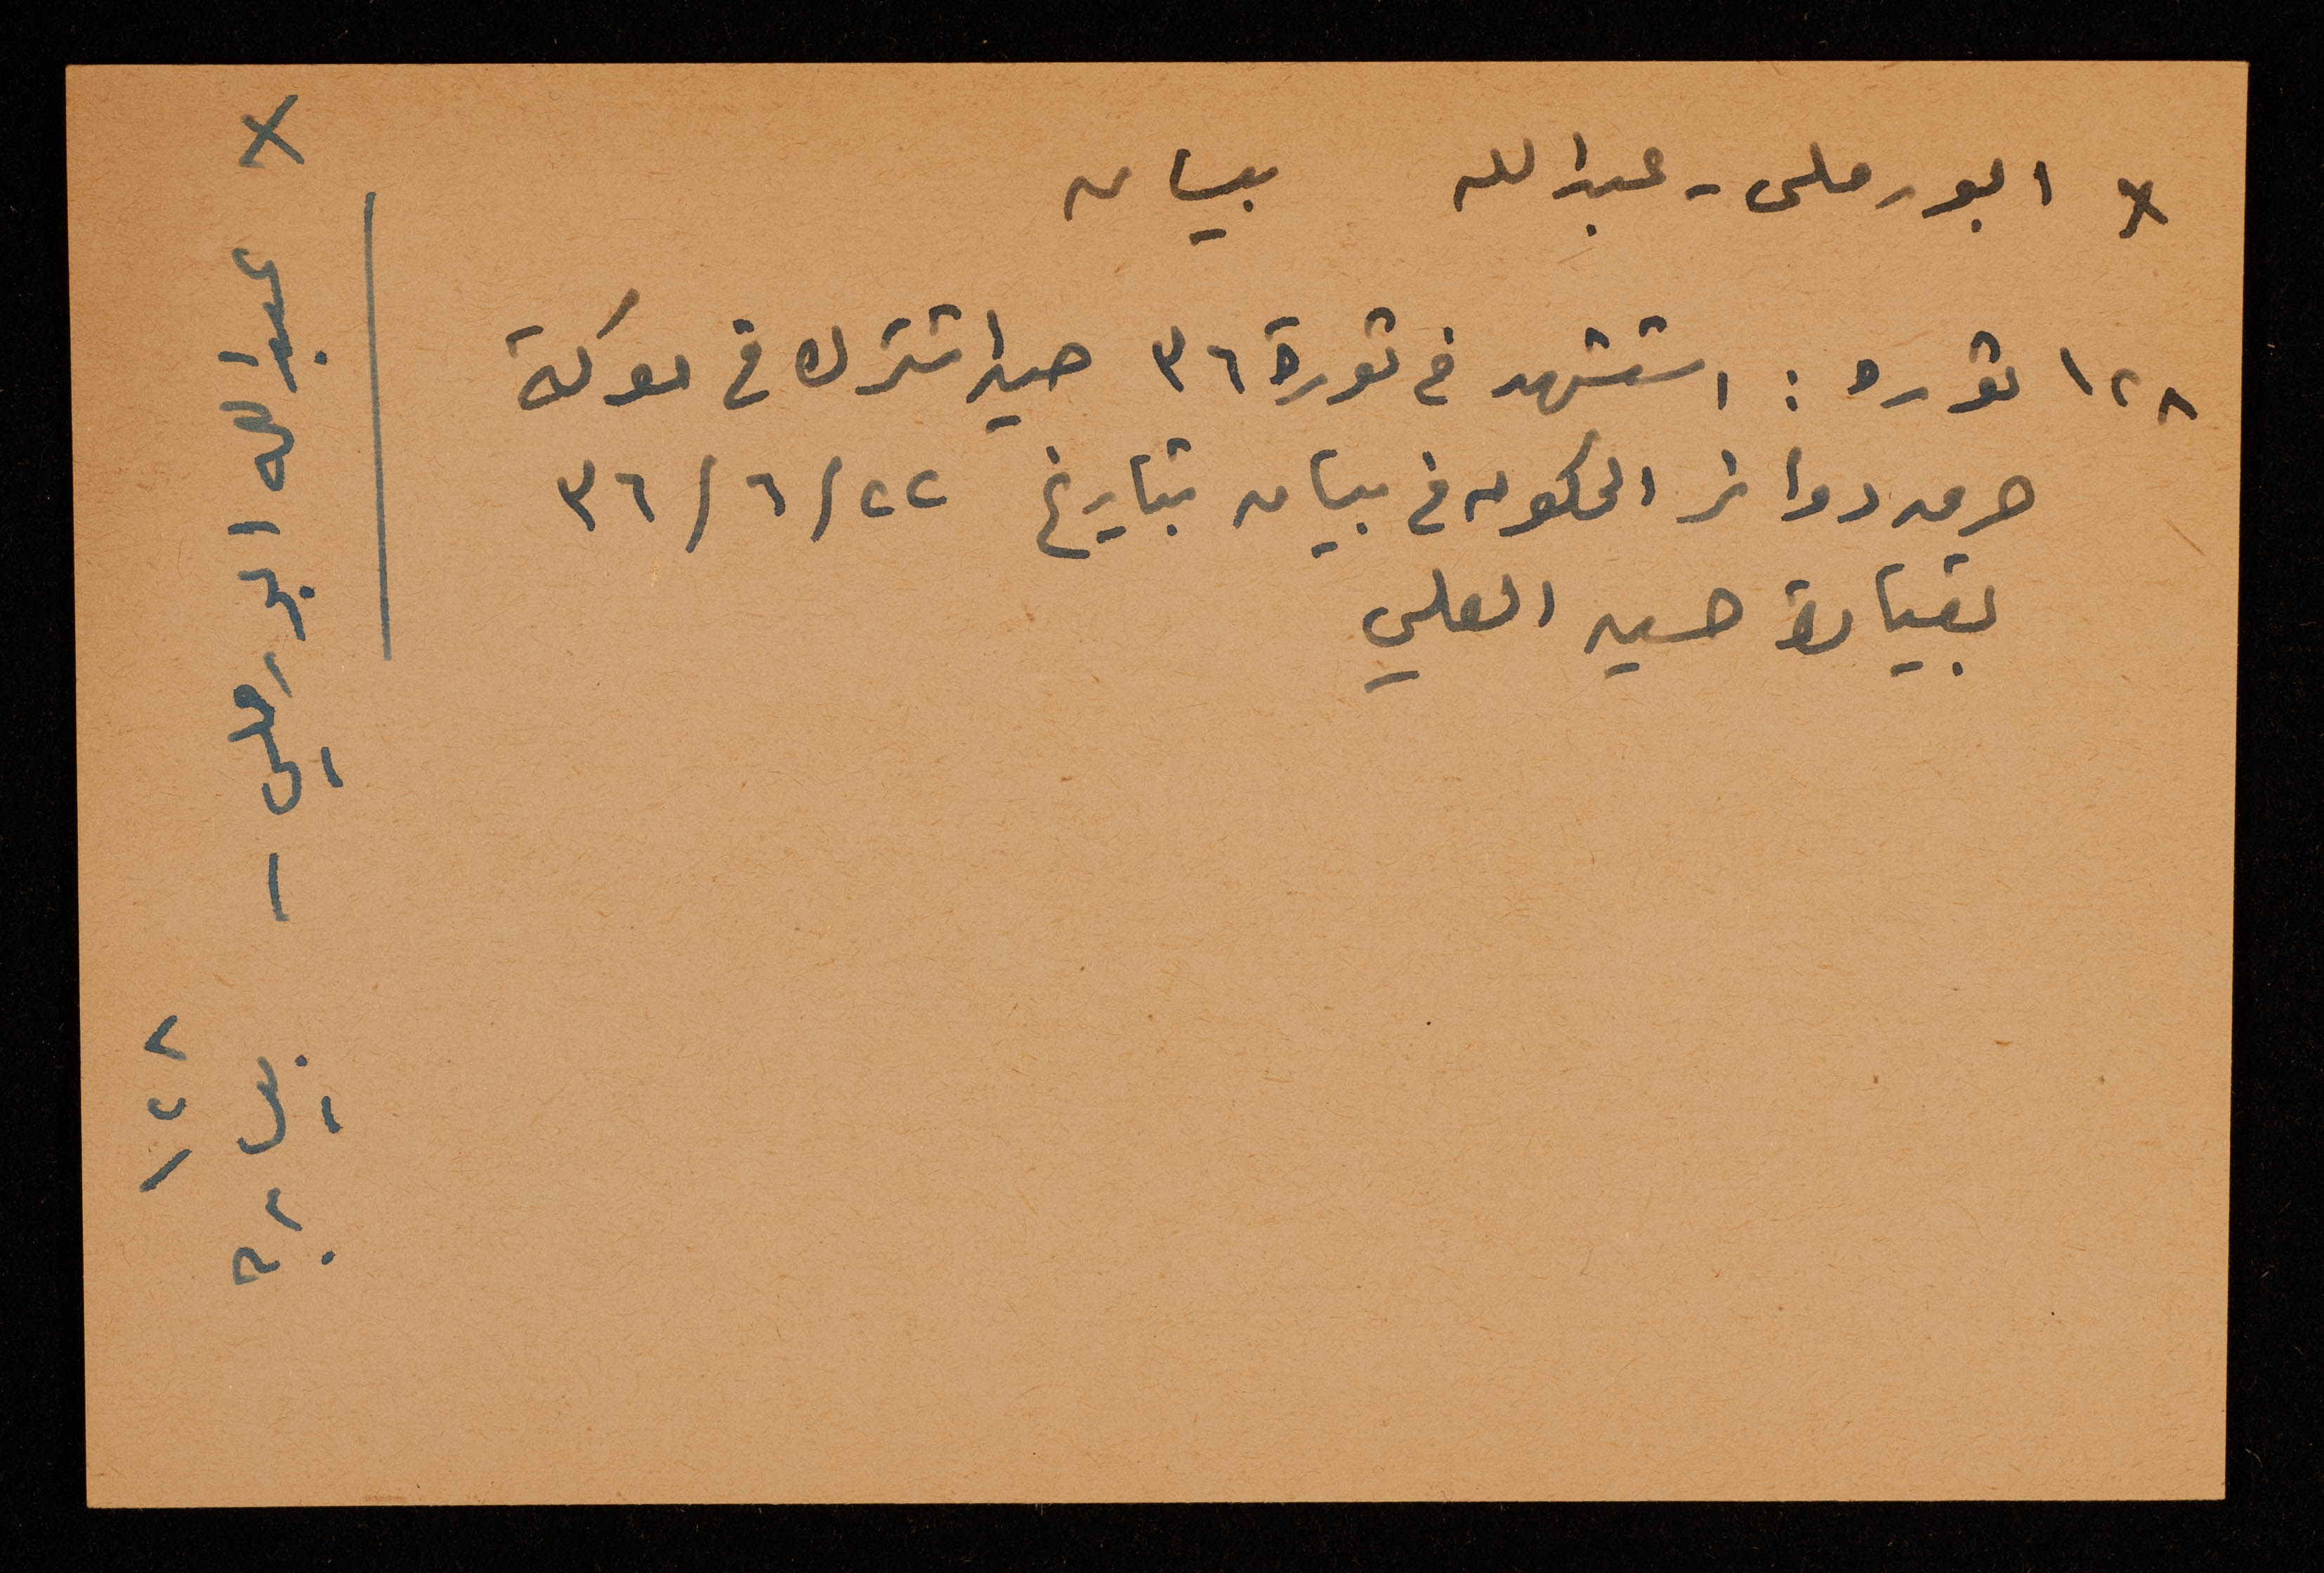 x ابو رملى - عبد الله بيسان
١٢٨ ثوره : استشهد في ثورة ٣٦ حين اشترك في معركة
حرق دوائر الحكومه في بيسان بتاريخ ٢٢/٦/٣٦
بقيادة حسين العلي
x عبد الله ابو رملي -
١٢٨